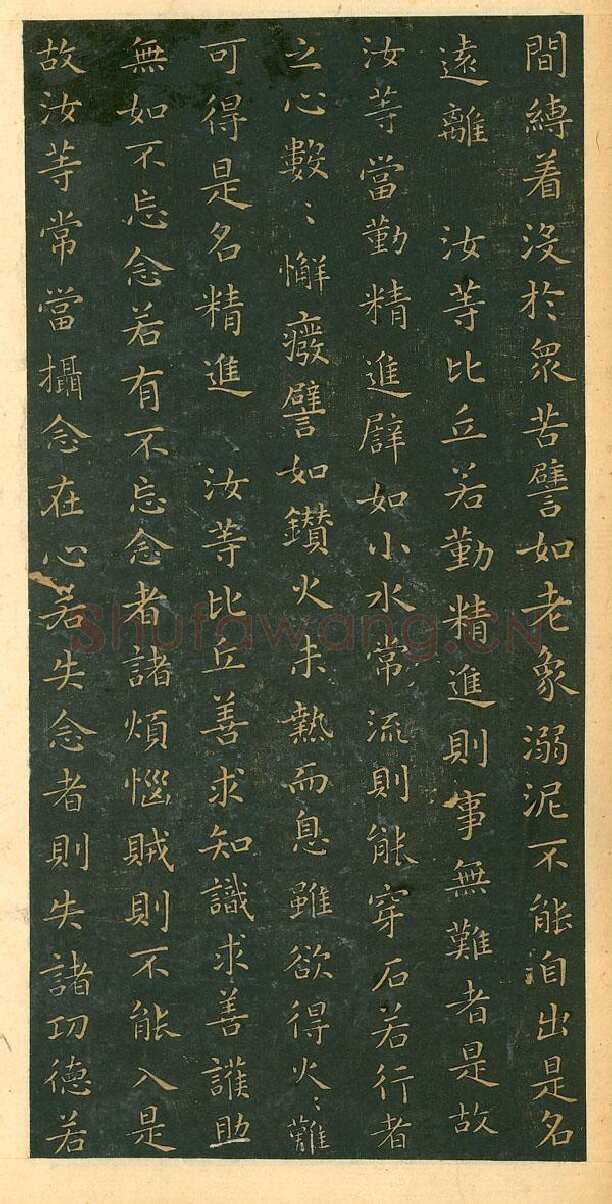 間縳着没於眾苦譬如老象溺泥不能自出是名
遠離　汝等比丘若勤精進則事無難者是故
汝等當勤精進辟如小水常流則能穿石若行者
之心數〻懈癈譬如鑚火未熱而息雖欲得火〻難
可得是名精進　汝等比丘善求知識求善護助
無如不忘念若有不忘念者諸煩惱賊則不能入是
故汝等常當攝念在心若失念者則失諸功德若
Shufawang.CN